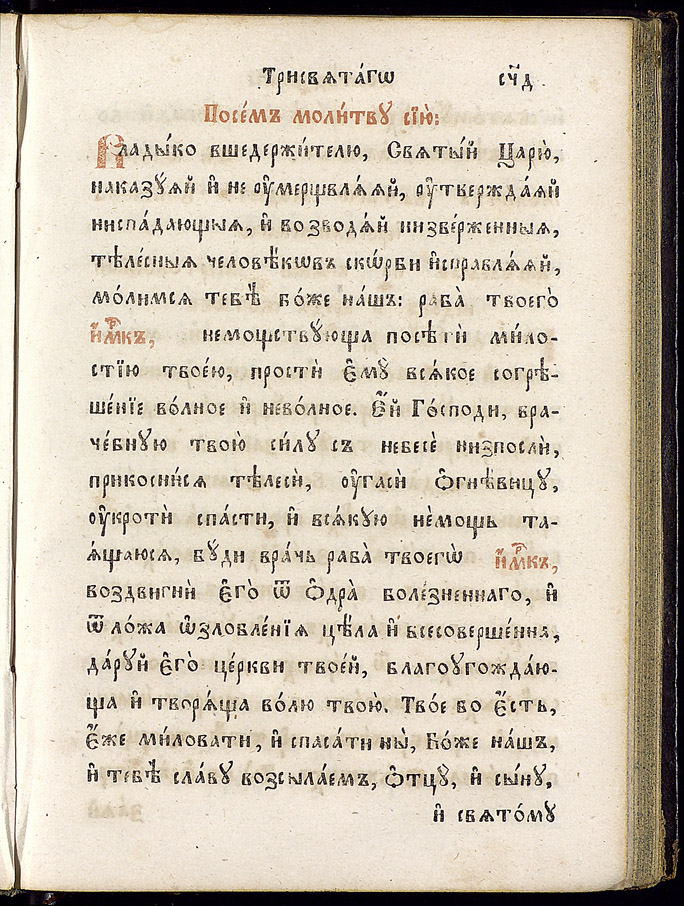 Трисвѧта́гѡ сч҃д
Посе́мъ моли́твꙋ сїю̀:
Влады́ко вседержи́телю, Свѧты́й Царю̀,
наказꙋ́ѧй и҆ не ᲂу҆мерщвлѧ́ѧй, ᲂу҆твержда́ѧй
низпа́дающыѧ, и҆ возводѧ́й низве́рженныѧ,
тѣле́сныѧ человѣ́кѡвъ скѡ́рби и҆справлѧ́ѧй,
мо́лимсѧ тебѣ̀ бо́же на́шъ: раба̀ твоего̀
и҆́м҃ркъ, немощствꙋ́юща посѣтѝ ми́ло-
стїю твое́ю, простѝ є҆мꙋ̀ всѧ́кое согрѣ-
ше́нїе во́лное и҆ нево́лное. Є҆́й Го́споди, вра-
че́бнꙋю твою̀ си́лꙋ съ небесѐ низпослѝ,
прикосни́сѧ тѣлесѝ, ᲂу҆гасѝ ѻ҆гне́вицꙋ,
ᲂу҆кротѝ спа́сти, и҆ всѧ́кꙋю не́мощь та-
ѧ́щаюсѧ, бꙋ́ди вра́чь раба̀ твоегѡ̀ и҆́м҃ркъ,
воздви́гни є҆го̀ ѿ ѻ҆дра̀ болѣ́зненнаго, и҆
ѿ ло́жа ѡ҆зѡбле́нїѧ цѣ́ла и҆ всесоверше́нна,
да́рꙋй є҆го̀ це́ркви твое́й, благоꙋгожда́ю-
ща и҆ творѧ́ща во́лю твою̀. Твое́ бо є҆́сть,
є҆́же ми́ловати, и҆ спаса́ти ны̀, Бо́же на́шъ,
и҆ тебѣ̀ сла́вꙋ возсыла́емъ, ѻ҆тцꙋ̀, и҆ сы́нꙋ,
и҆ свѧто́мꙋ